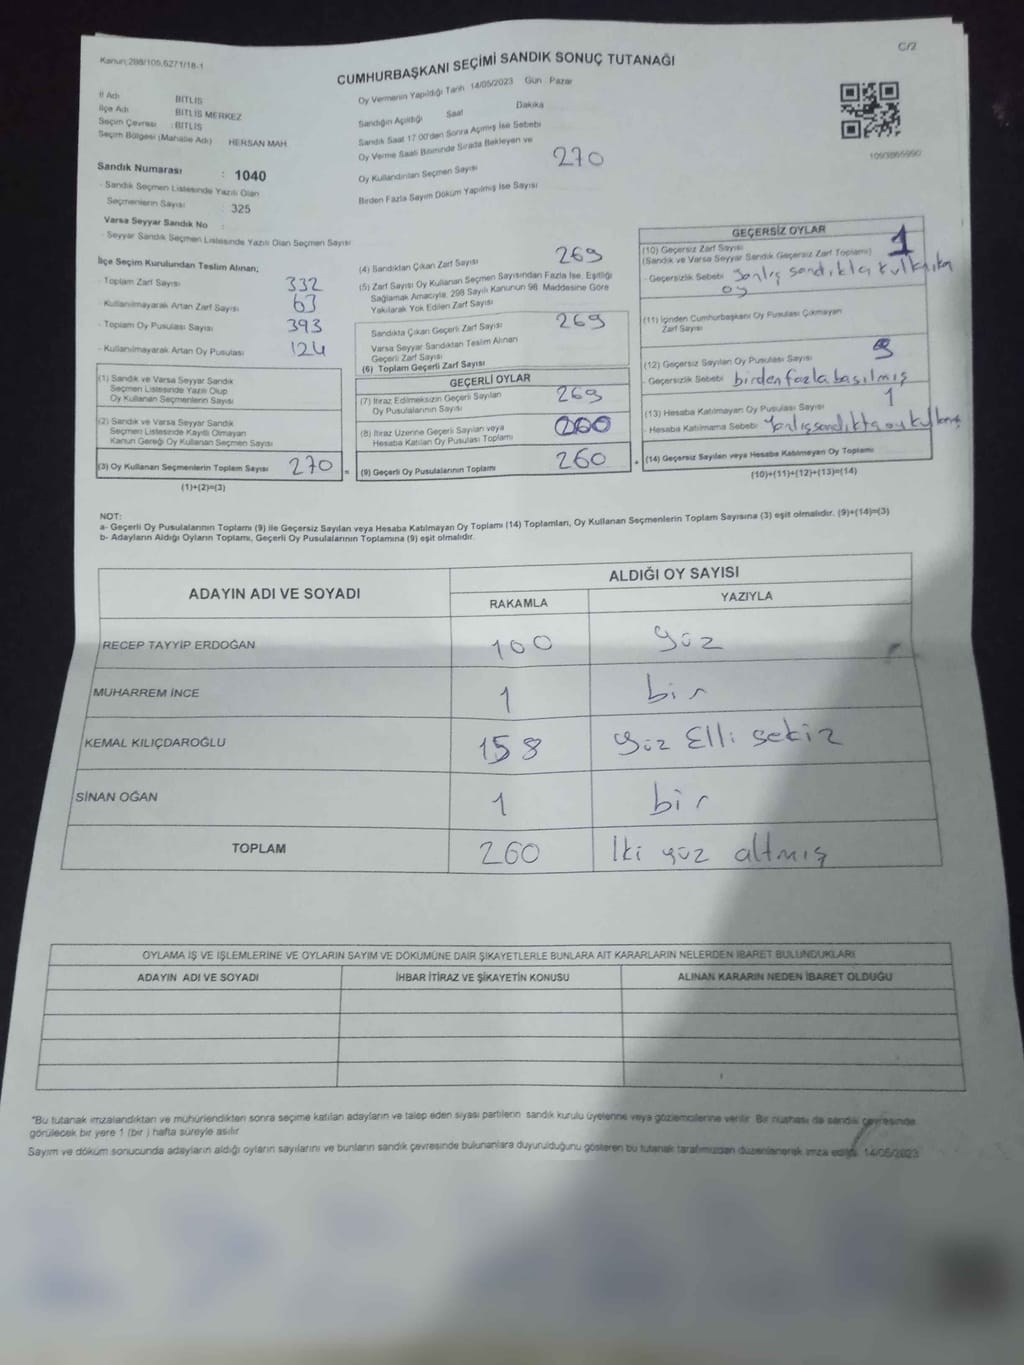 C/2
Kanun:298/105,6271/18-1
CUMHURBAŞKANI SEÇİMİ SANDIK SONUÇ TUTANAĞI
İl Adı BİTLİS
İlçe Adı BİTLİS MERKEZ
Seçim Çevresi : BİTLİS
Seçim Bölgesi (Mahalle Adı) HERSAN MAH.
Sandık Numarası : 1040
- Sandık Seçmen Listesinde Yazılı Olan
Seçmenlerin Sayısı 325
Varsa Seyyar Sandık No
- Seyyar Sandık Seçmen Listesinde Yazılı Olan Seçmen Sayısı
Oy Vermenin Yapıldığı Tarih 14/05/2023 Gün : Pazar
Sandığın Açıldığı Saat Dakika
Sandık Saat 17.00'den Sonra Açımış İse Sebebi
Oy Verme Saati Bitiminde Sırada Bekleyen ve
Oy Kullandırılan Seçmen Sayısı 270
Birden Fazla Sayım Döküm Yapılmış İse Sayısı
1093865990
İlçe Seçim Kurulundan Teslim Alınan;
- Toplam Zarf Sayısı 332
- Kullanılmayarak Artan Zarf Sayısı 63
- Toplam Oy Pusulası Sayısı 393
- Kullanılmayarak Artan Oy Pusulası 124
(1) Sandık ve Varsa Seyyar Sandık
Seçmen Listesinde Yazılı Olup
Oy Kullanan Seçmenlerin Sayısı
(2) Sandık ve Varsa Seyyar Sandık
Seçmen Listesinde Kayıtlı Olmayan
Kanun Gereği Oy Kullanan Seçmen Sayısı
(3) Oy Kullanan Seçmenlerin Toplam Sayısı 270 =
(1)+(2)=(3)
(4) Sandıktan Çıkan Zarf Sayısı 269
(5) Zarf Sayısı Oy Kullanan Seçmen Sayısından Fazla İse, Eşitliği
Sağlamak Amacıyla, 298 Sayılı Kanunun 98. Maddesine Göre
Yakılarak Yok Edilen Zarf Sayısı
Sandıkta Çıkan Geçerli Zarf Sayısı 269
Varsa Seyyar Sandıktan Teslim Alınan
Geçerli Zarf Sayısı
(6) Toplam Geçerli Zarf Sayısı
GEÇERLİ OYLAR
(7) İtiraz Edilmeksizin Geçerli Sayılan
Oy Pusulalarının Sayısı 269
(8) İtiraz Üzerine Geçerli Sayılan veya
Hesaba Katılan Oy Pusulası Toplamı 260
(9) Geçerli Oy Pusulalarının Toplamı 260 +
GEÇERSİZ OYLAR
(10) Geçersiz Zarf Sayısı
(Sandık ve Varsa Seyyar Sandık Geçersiz Zarf Toplamı) 1
- Geçersizlik Sebebi yanlış sandıkta
oy
(11) İçinden Cumhurbaşkanı Oy Pusulası Çıkmayan
Zarf Sayısı
(12) Geçersiz Sayılan Oy Pusulası Sayısı
- Geçersizlik Sebebi birden fazla basılmış
(13) Hesaba Katılmayan Oy Pusulası Sayısı 1
- Hesaba Katılmama Sebebi Yanlış sandıkta oy
(14) Geçersiz Sayılan veya Hesaba Katılmayan Oy Toplamı
(10)+(11)+(12)+(13)=(14)
NOT:
a- Geçerli Oy Pusulalarının Toplamı (9) ile Geçersiz Sayılan veya Hesaba Katılmayan Oy Toplamı (14) Toplamları, Oy Kullanan Seçmenlerin Toplam Sayısına (3) eşit olmalıdır. (9)+(14)=(3)
b- Adayların Aldığı Oyların Toplamı, Geçerli Oy Pusulalarının Toplamına (9) eşit olmalıdır.
ADAYIN ADI VE SOYADI ALDIĞI OY SAYISI
RAKAMLA YAZIYLA
RECEP TAYYİP ERDOĞAN 100 yüz
MUHARREM İNCE 1 bir
KEMAL KILIÇDAROĞLU 158 yüz Elli sekiz
SİNAN OĞAN 1 bir
TOPLAM 260 İki yüz altmış
OYLAMA İŞ VE İŞLEMLERİNE VE OYLARIN SAYIM VE DÖKÜMÜNE DAİR ŞİKAYETLERLE BUNLARA AİT KARARLARIN NELERDEN İBARET BULUNDUKLARI
ADAYIN ADI VE SOYADI İHBAR İTİRAZ VE ŞİKAYETİN KONUSU ALINAN KARARIN NEDEN İBARET OLDUĞU
*Bu tutanak imzalandıktan ve mühürlendikten sonra seçime katılan adayların ve talep eden siyasi partilerin sandık kurulu üyelerine veya gözlemcilerine verilir. Bir nüshası da sandık çevresinde
görülecek bir yere 1 (bir ) hafta süreyle asılır.
Sayım ve döküm sonucunda adayların aldığı oyların sayılarını ve bunların sandık çevresinde bulunanlara duyurulduğunu gösteren bu tutanak tarafımızdan düzenlenerek imza edildi. 14/05/2023